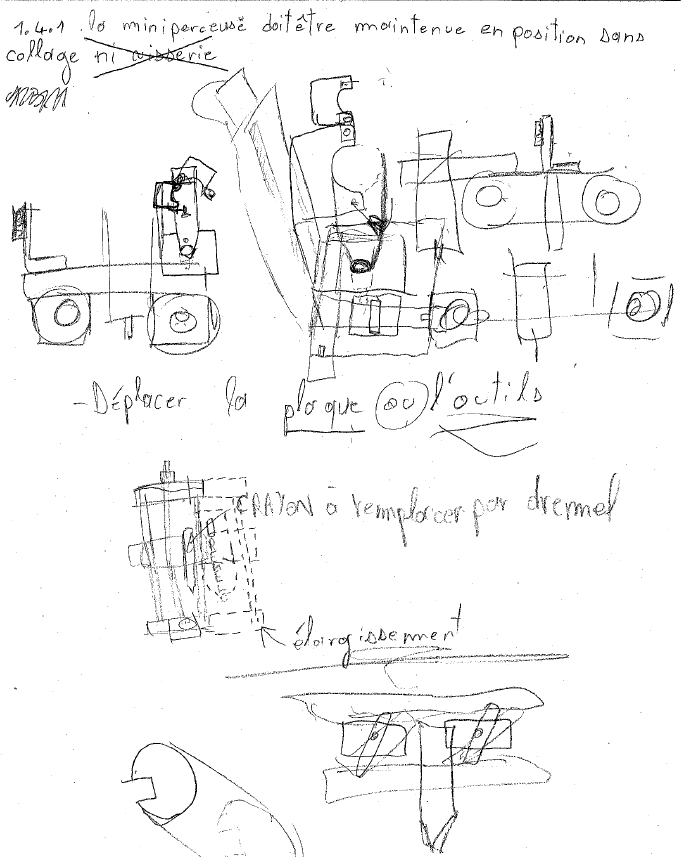 1.4.1 la miniperceuse doit être maintenue en position sans
collage ni visserie
- Déplacer la plaque ou l'outils
CRAYON à remplacer par dremmel
élargissement